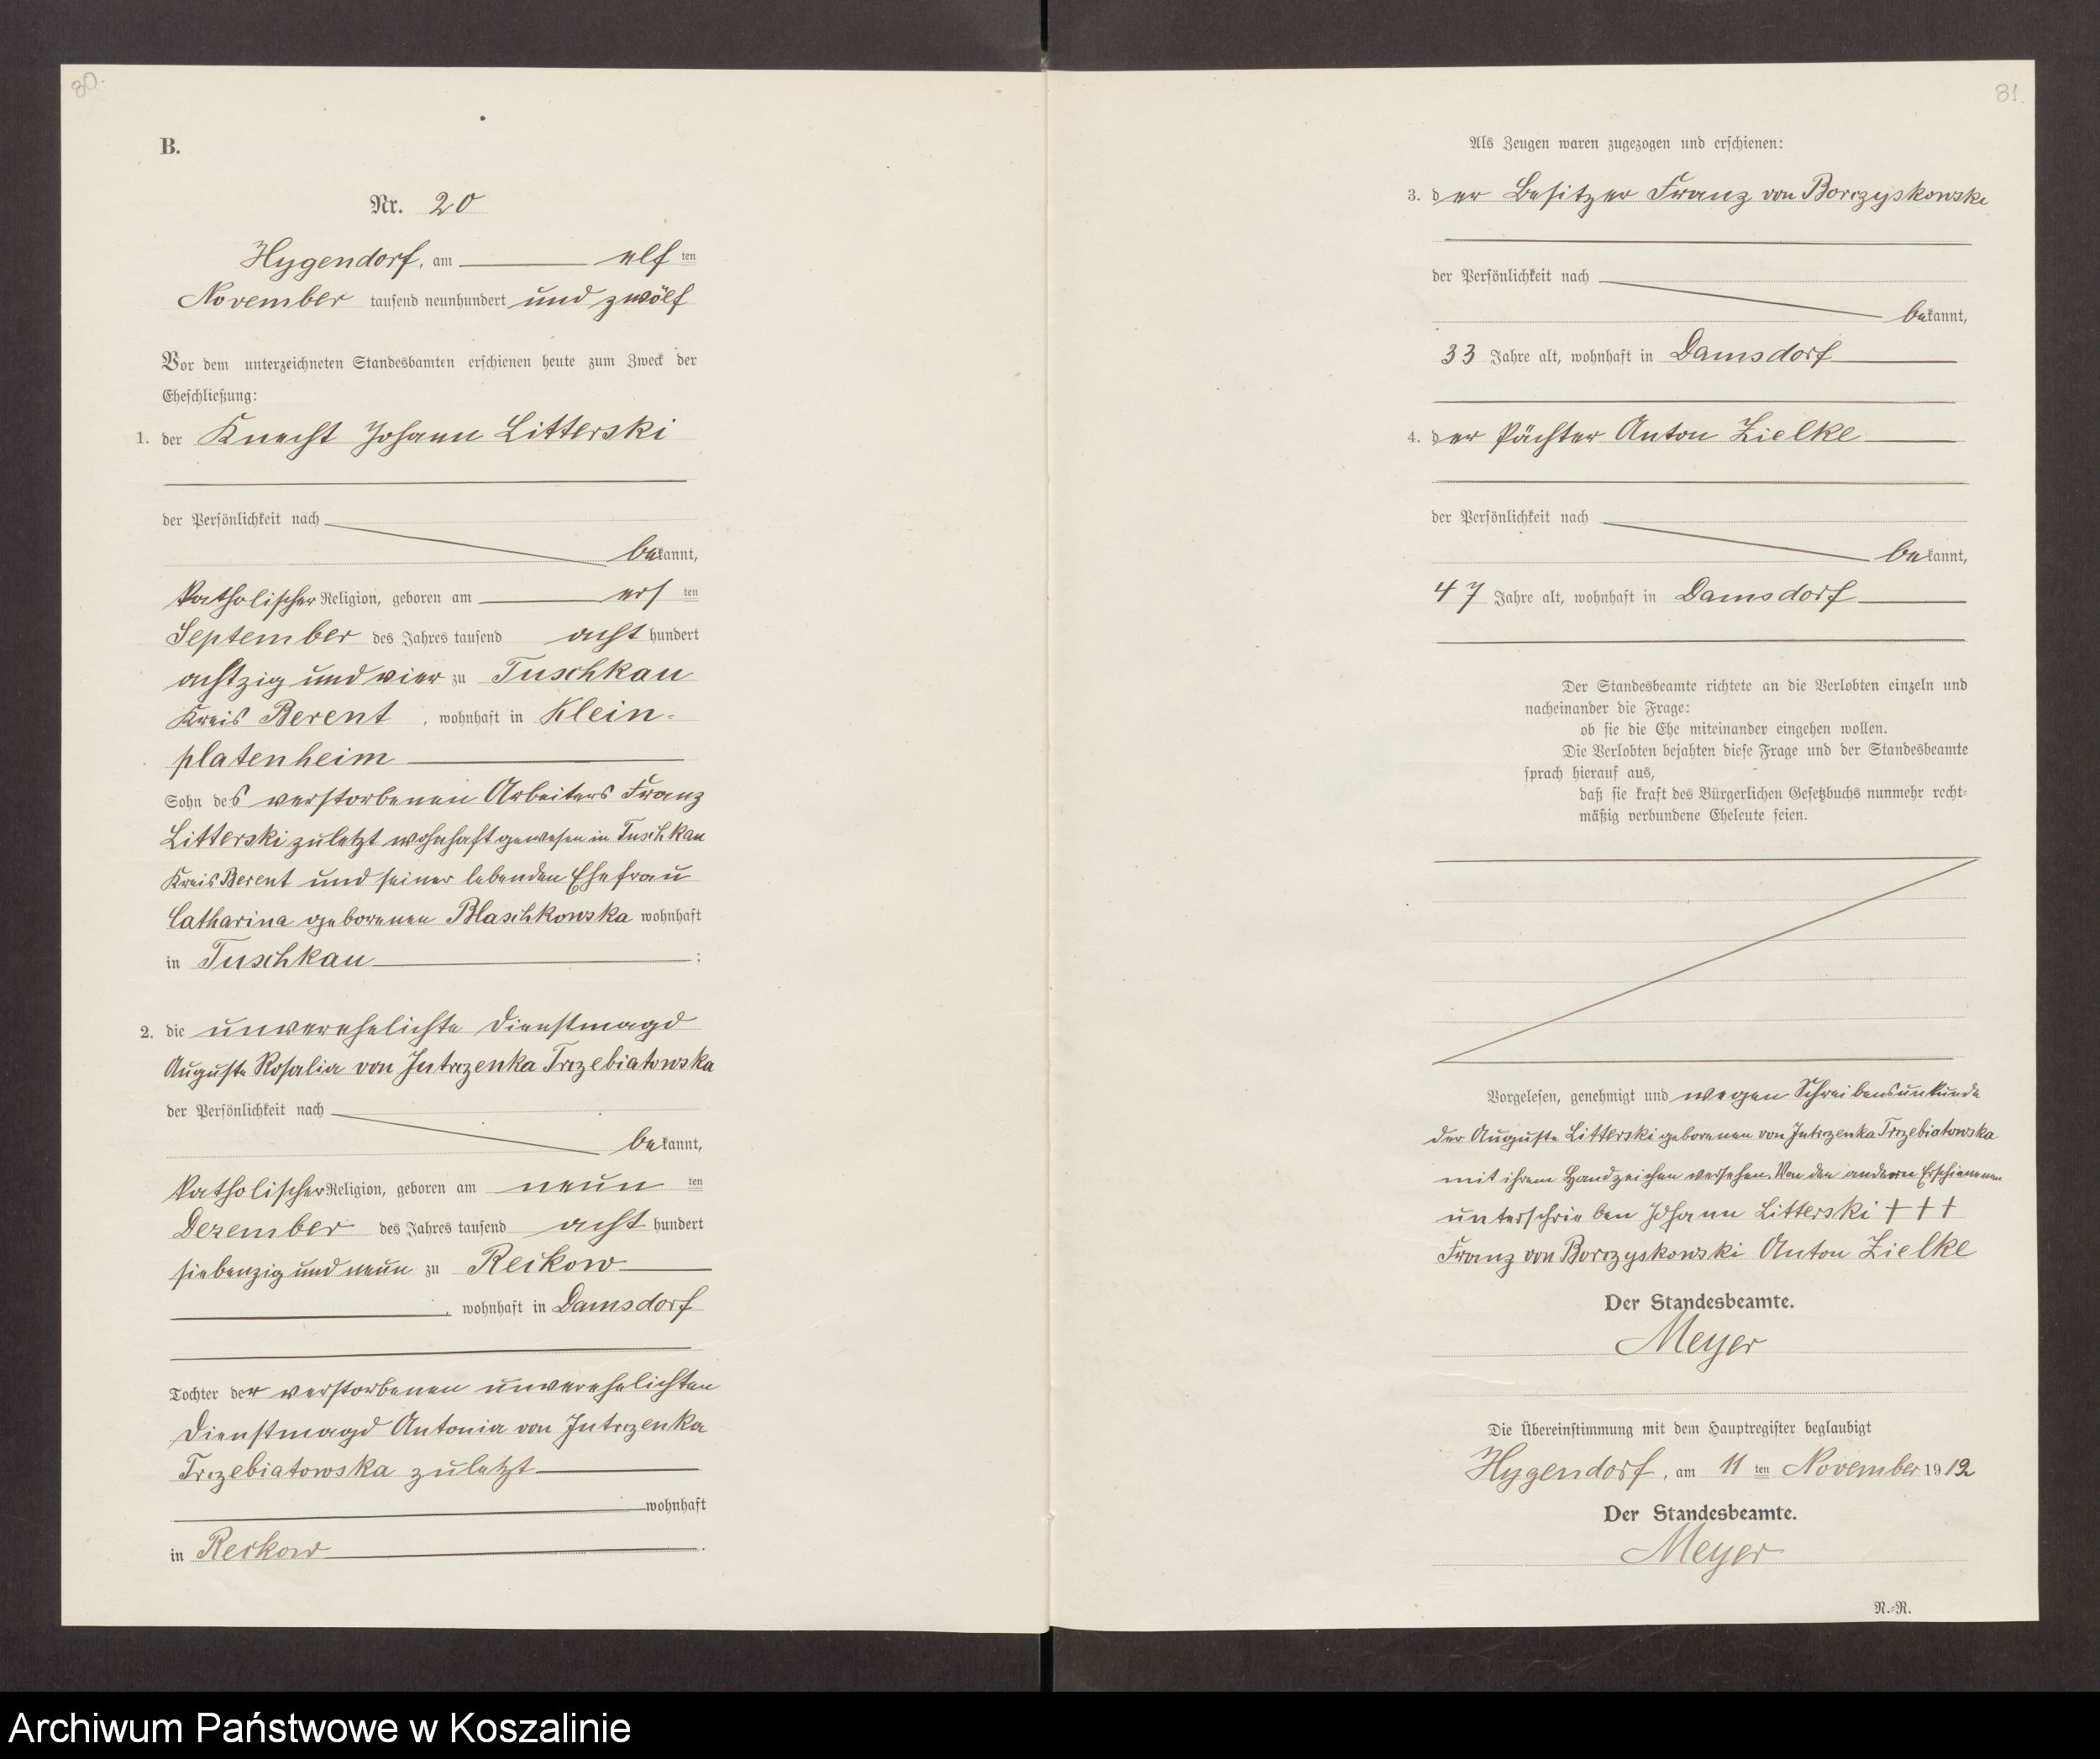 80.
B.
Nr. 20
Hygendorf, am elf ten
November tausend neunhundert und zwölf
Vor dem unterzeichneten Standesbamten erschienen heute zum Zweck der
Eheschließung:
1. der Knecht Johann Litterski
der Persönlichkeit nach
bekannt,
katholischer Religion, geboren am ers ten
September des Jahres tausend acht hundert
achtzig und vier zu Tuschkau
Kreis Berent, wohnhaft in Klein-
platenheim
Sohn des verstorbenen Arbeiters Franz
Litterski zuletzt wohnhaft gewesen in Tuschkau
Kreis Berent und seiner lebenden Ehefrau
Catharina geborenen Blaschkowska wohnhaft
in Tuschkau ;
2. die unverehelichte Dienstmagd
Auguste Rosalia von Jutrzenka Trzebiatowska
der Persönlichkeit nach
bekannt,
katholischer Religion, geboren am neun ten
Dezember des Jahres tausend acht hundert
siebenzig und neun zu Reckow
, wohnhaft in Damsdorf
Tochter der verstorbenen unverehelichten
Dienstmagd Antonia von Jutrzenka
Trzebiatowska zuletzt
wohnhaft
in Reckow .
81.
Als Zeugen waren zugezogen und erschienen:
3. der Besitzer Franz von Borczyskowski
der Persönlichkeit nach
bekannt,
33 Jahre alt, wohnhaft in Damsdorf
4. der Pächter Anton Zielke
der Persönlichkeit nach
bekannt,
47 Jahre alt, wohnhaft in Damsdorf
Der Standesbeamte richtete an die Verlobten einzeln und
nacheinander die Frage:
ob sie die Ehe miteinander eingehen wollen.
Die Verlobten bejahten diese Frage und der Standesbeamte
sprach hierauf aus,
daß sie kraft des Bürgerlichen Gesetzbuchs nunmehr recht-
mäßig verbundene Eheleute seien.
Vorgelesen, genehmigt und wegen Schreibensunkunde
der Auguste Litterski geborenen von Jutrzenka Trzebiatowska
mit ihrem Handzeichen versehen. Von den anderen Erschienenen
unterschrieben Johann Litterski + + +
Franz von Borczyskowski Anton Zielke
Der Standesbeamte.
Meyer
Die Übereinstimmung mit dem Hauptregister beglaubigt
Hygendorf, am 11 ten November 1912
Der Standesbeamte.
Meyer
N.-R.
Archiwum Państwowe w Koszalinie